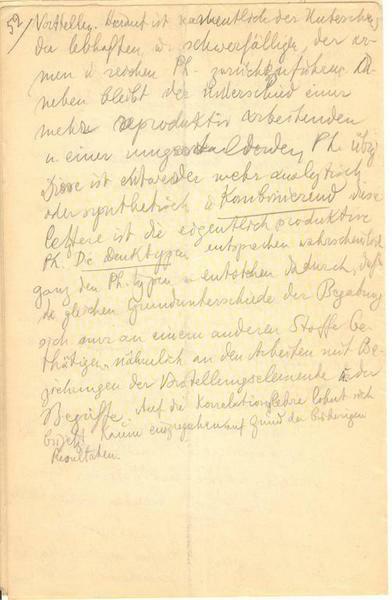 52/ Vorstellen. Darauf ist namentlich der Unterschied
der lebhaften u. schwerfälligen, der ar-
men u reichen Ph. zurückzuführen. Da
neben bleibt der Unterschied einer
mehr reproduktiv arbeitenden
u einer umgestaltenden Ph. übrig
Diese ist entweder mehr analytisch
oder synthetisch u Kombinierend diese
letztere ist die eigentlich produktive
Ph. Die Denktypen entsprechen wahrscheinlich
ganz den Ph. typen u entstehen dadurch, daß
die gleichen Grundunterschiede der Begabung
sich nur an einem anderen Stoffe be-
thätigen, nähmlich an den Arbeiten mit Be-
ziehungen der Vorstellungselemente u der
Begriffe. Auf die Korrelationslehre lohnt sich
kaum einzugehen auf Grund der bisherigen
Resultaten.